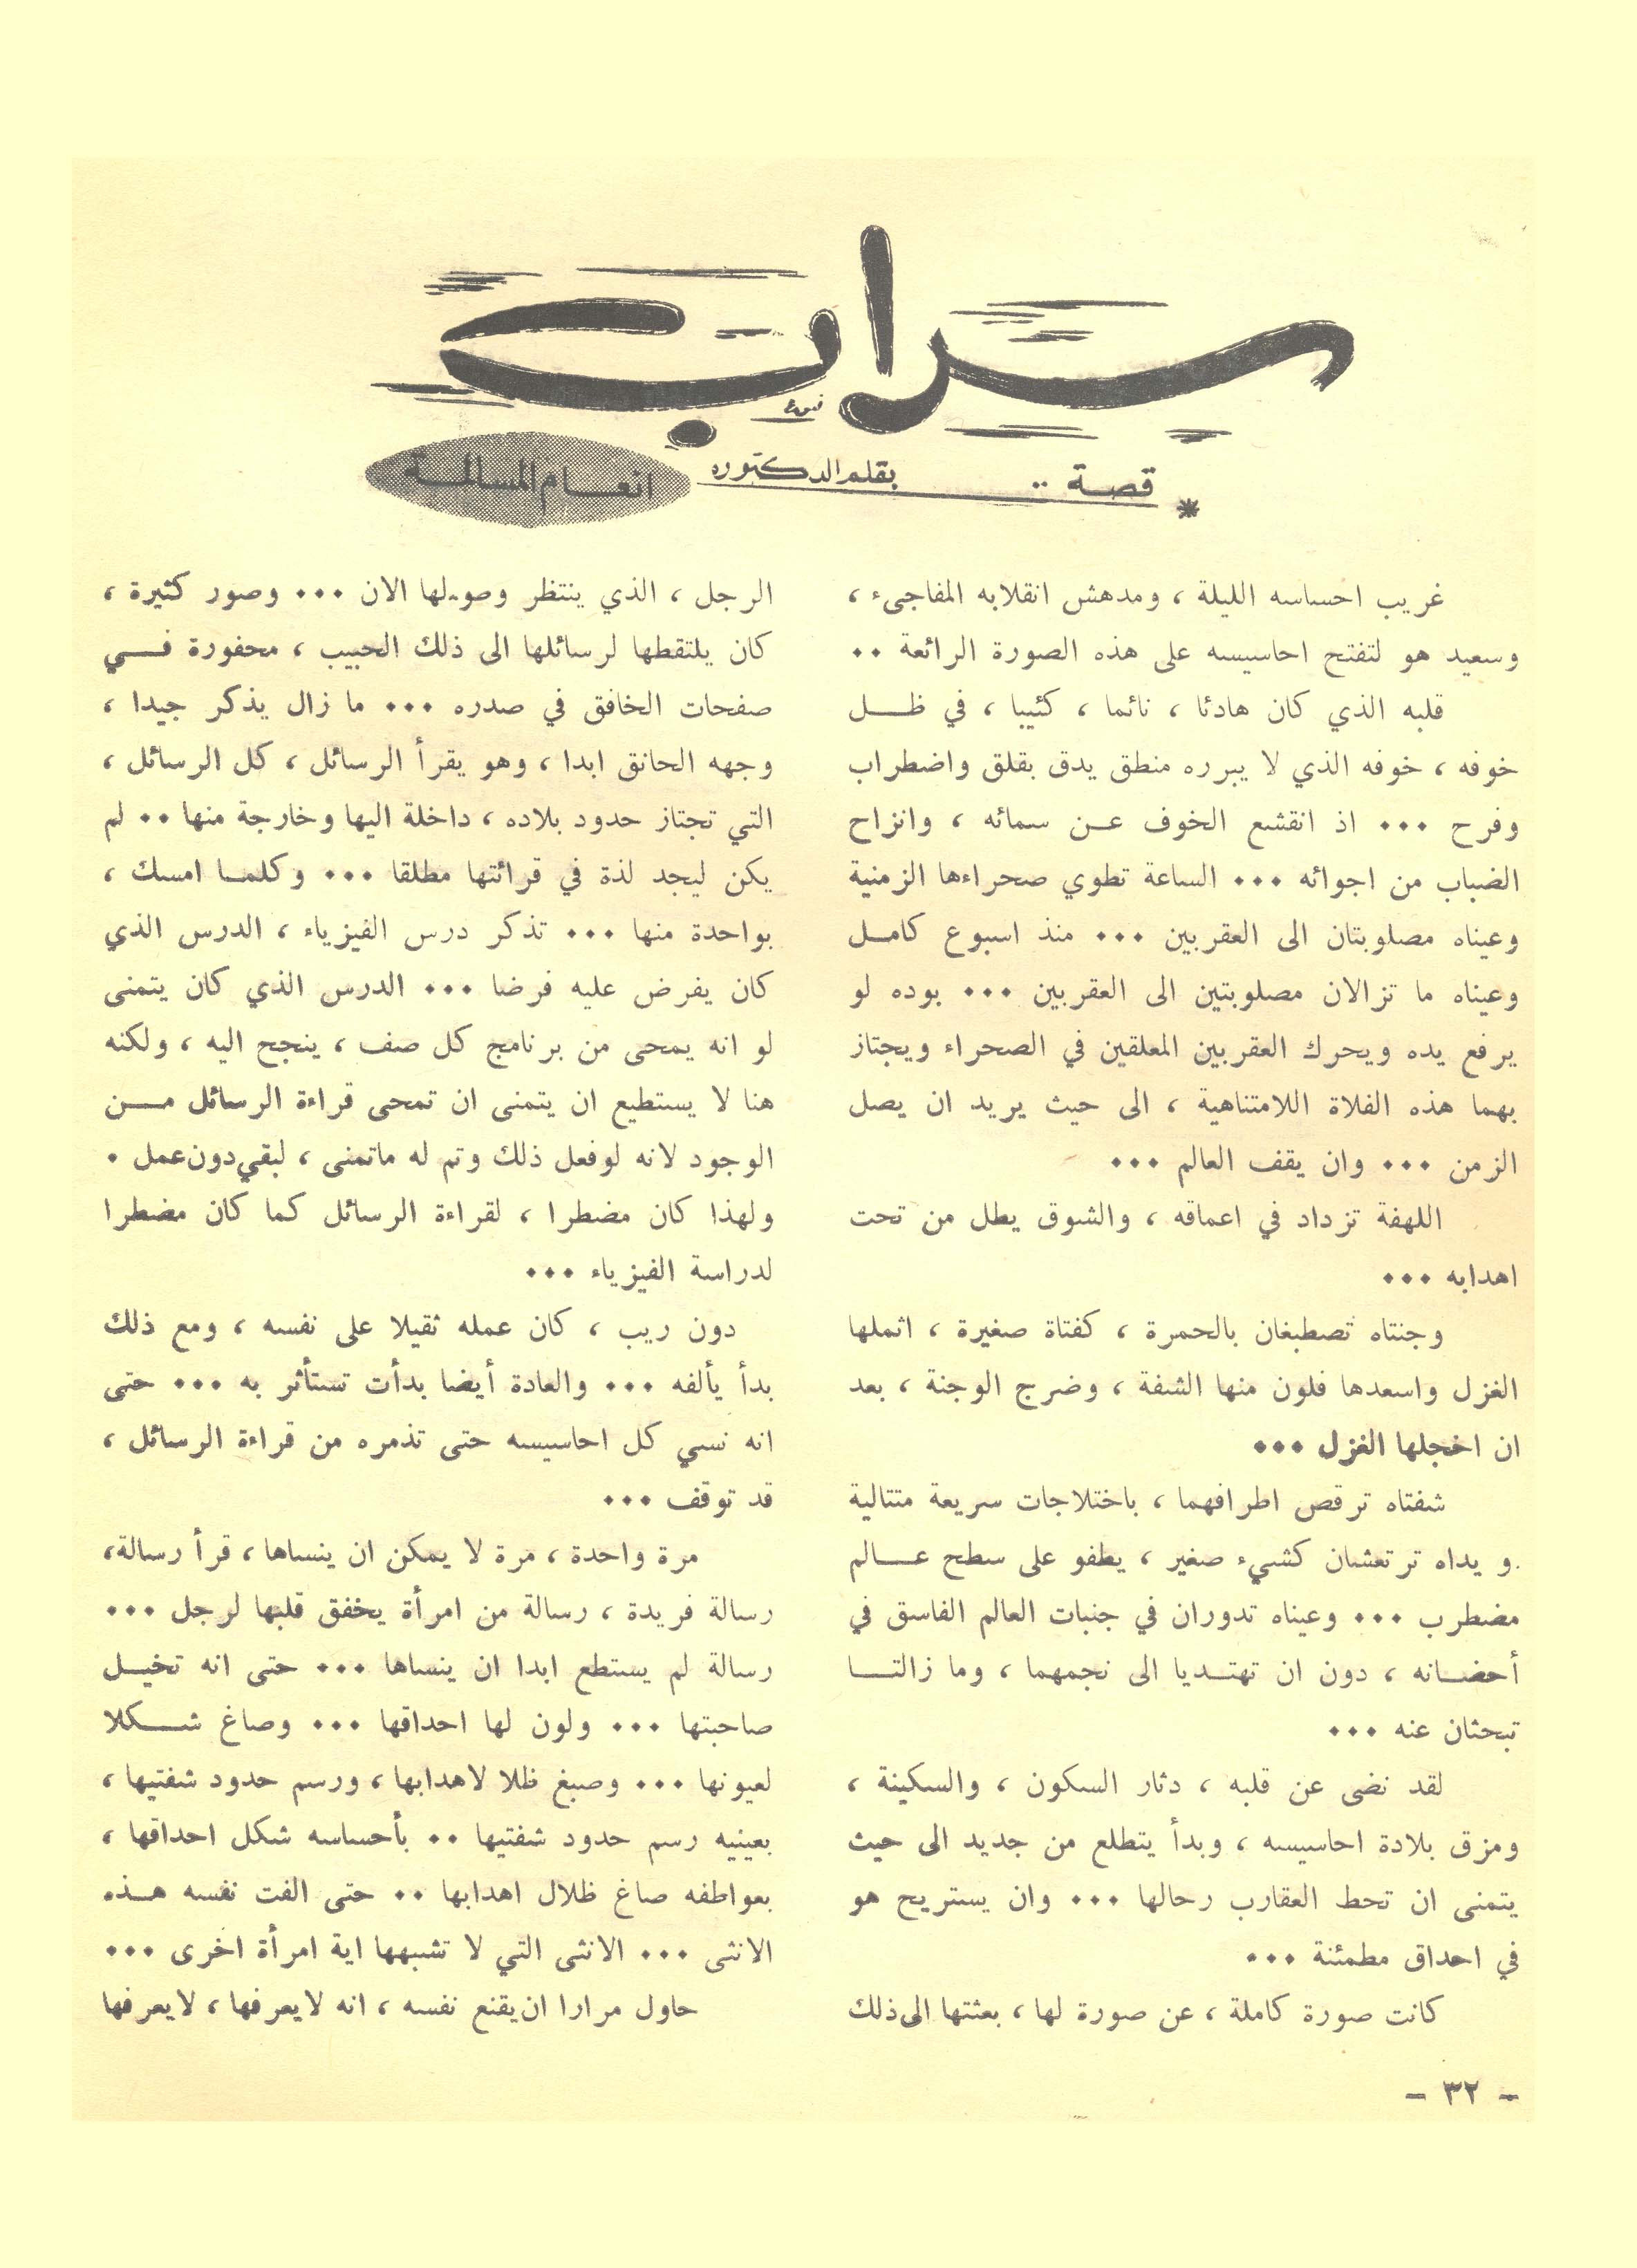 سراب
قصة ..
بقلم الدكتوره
انعام المسالمة
غريب احساسه الليلة ، ومدهش انقلابه المفاجىء ،
وسعيد هو لتفتح احاسيسه على هذه الصورة الرائعة ..
قلبه الذي كان هادئا ، نائما ، كئيبا ، في ظل
خوفه ، خوفه الذي لا يبرره منطق يدق بقلق واضطراب
وفرح ... اذ انقشع الخوف عن سمائه ، وانزاح
الضباب من اجوائه ... الساعة تطوي صحراءها الزمنية
وعيناه مصلوبتان الى العقربين ... منذ اسبوع كامل
وعيناه ما تزالان مصلوبتين الى العقربين ... بوده لو
يرفع يده ويحرك العقربين المعلقين في الصحراء ويجتاز
بهما هذه الفلاة اللامتناهية ، الى حيث يريد ان يصل
الزمن ... وان يقف العالم ...
اللهفة تزداد في اعماقه ، والشوق يطل من تحت
اهدابه ...
وجنتاه تصطبغان بالحمرة ، كفتاة صغيرة ، اثملها
الغزل واسعدها فلون منها الشفة ، وضرج الوجنة ، بعد
ان اخجلها الغزل ...
شفتاه ترقص اطرافهما ، باختلاجات سريعة متتالية
و يداه ترتعشان كشيء صغير ، يطفو على سطح عالم
مضطرب ... وعيناه تدوران في جنبات العالم الفاسق في
أحضانه ، دون ان تهتديا الى نجمهما ، وما زالتا
تبحثان عنه ...
لقد نضى عن قلبه ، دثار السكون ، والسكينة ،
ومزق بلادة احاسيسه ، وبدأ يتطلع من جديد الى حيث
يتمنى ان تحط العقارب رحالها ... وان يستريح هو
في احداق مطمئنة ...
كانت صورة كاملة ، عن صورة لها ، بعثتها الى ذلك
الرجل ، الذي ينتظر وصولها الان ... وصور كثيرة ،
كان يلتقطها لرسائلها الى ذلك الحبيب ، محفورة في
صفحات الخافق في صدره ... ما زال يذكر جيدا ،
وجهه الحانق ابدا ، وهو يقرأ الرسائل ، كل الرسائل ،
التي تجتاز حدود بلاده ، داخلة اليها وخارجة منها .. لم
يكن ليجد لذة في قرائتها مطلقا ... وكلما امسك ،
بواحدة منها ... تذكر درس الفيزياء ، الدرس الذي
كان يفرض عليه فرضا ... الدرس الذي كان يتمنى
لو انه يمحى من برنامج كل صف ، ينجح اليه ، ولكنه
هنا لا يستطيع ان يتمنى ان تمحى قراءة الرسائل من
الوجود لانه لوفعل ذلك وتم له ماتمنى ، لبقي دون عمل .
ولهذا كان مضطرا ، لقراءة الرسائل كما كان مضطرا
لدراسة الفيزياء ...
دون ريب ، كان عمله ثقيلا على نفسه ، ومع ذلك
بدأ يألفه ... والعادة أيضا بدأت تستأثر به ... حتى
انه نسي كل احاسيسه حتى تذمره من قراءة الرسائل ،
قد توقف ...
مرة واحدة ، مرة لا يمكن ان ينساها ، قرأ رسالة،
رسالة فريدة ، رسالة من امرأة يخفق قلبها لرجل ...
رسالة لم يستطع ابدا ان ينساها ... حتى انه تخيل
صاحبتها ... ولون لها احداقها ... وصاغ شكلا
لعيونها ... وصبغ ظلا لاهدابها ، ورسم حدود شفتيها ،
بعينيه رسم حدود شفتيها .. بأحساسه شكل احداقها ،
بعواطفه صاغ ظلال اهدابها .. حتى الفت نفسه هذه
الانثى ... الانثى التي لا تشبهها اية امرأة اخرى ...
حاول مرارا ان يقنع نفسه ، انه لايعرفها ، لايعرفها
- ٣٢ -